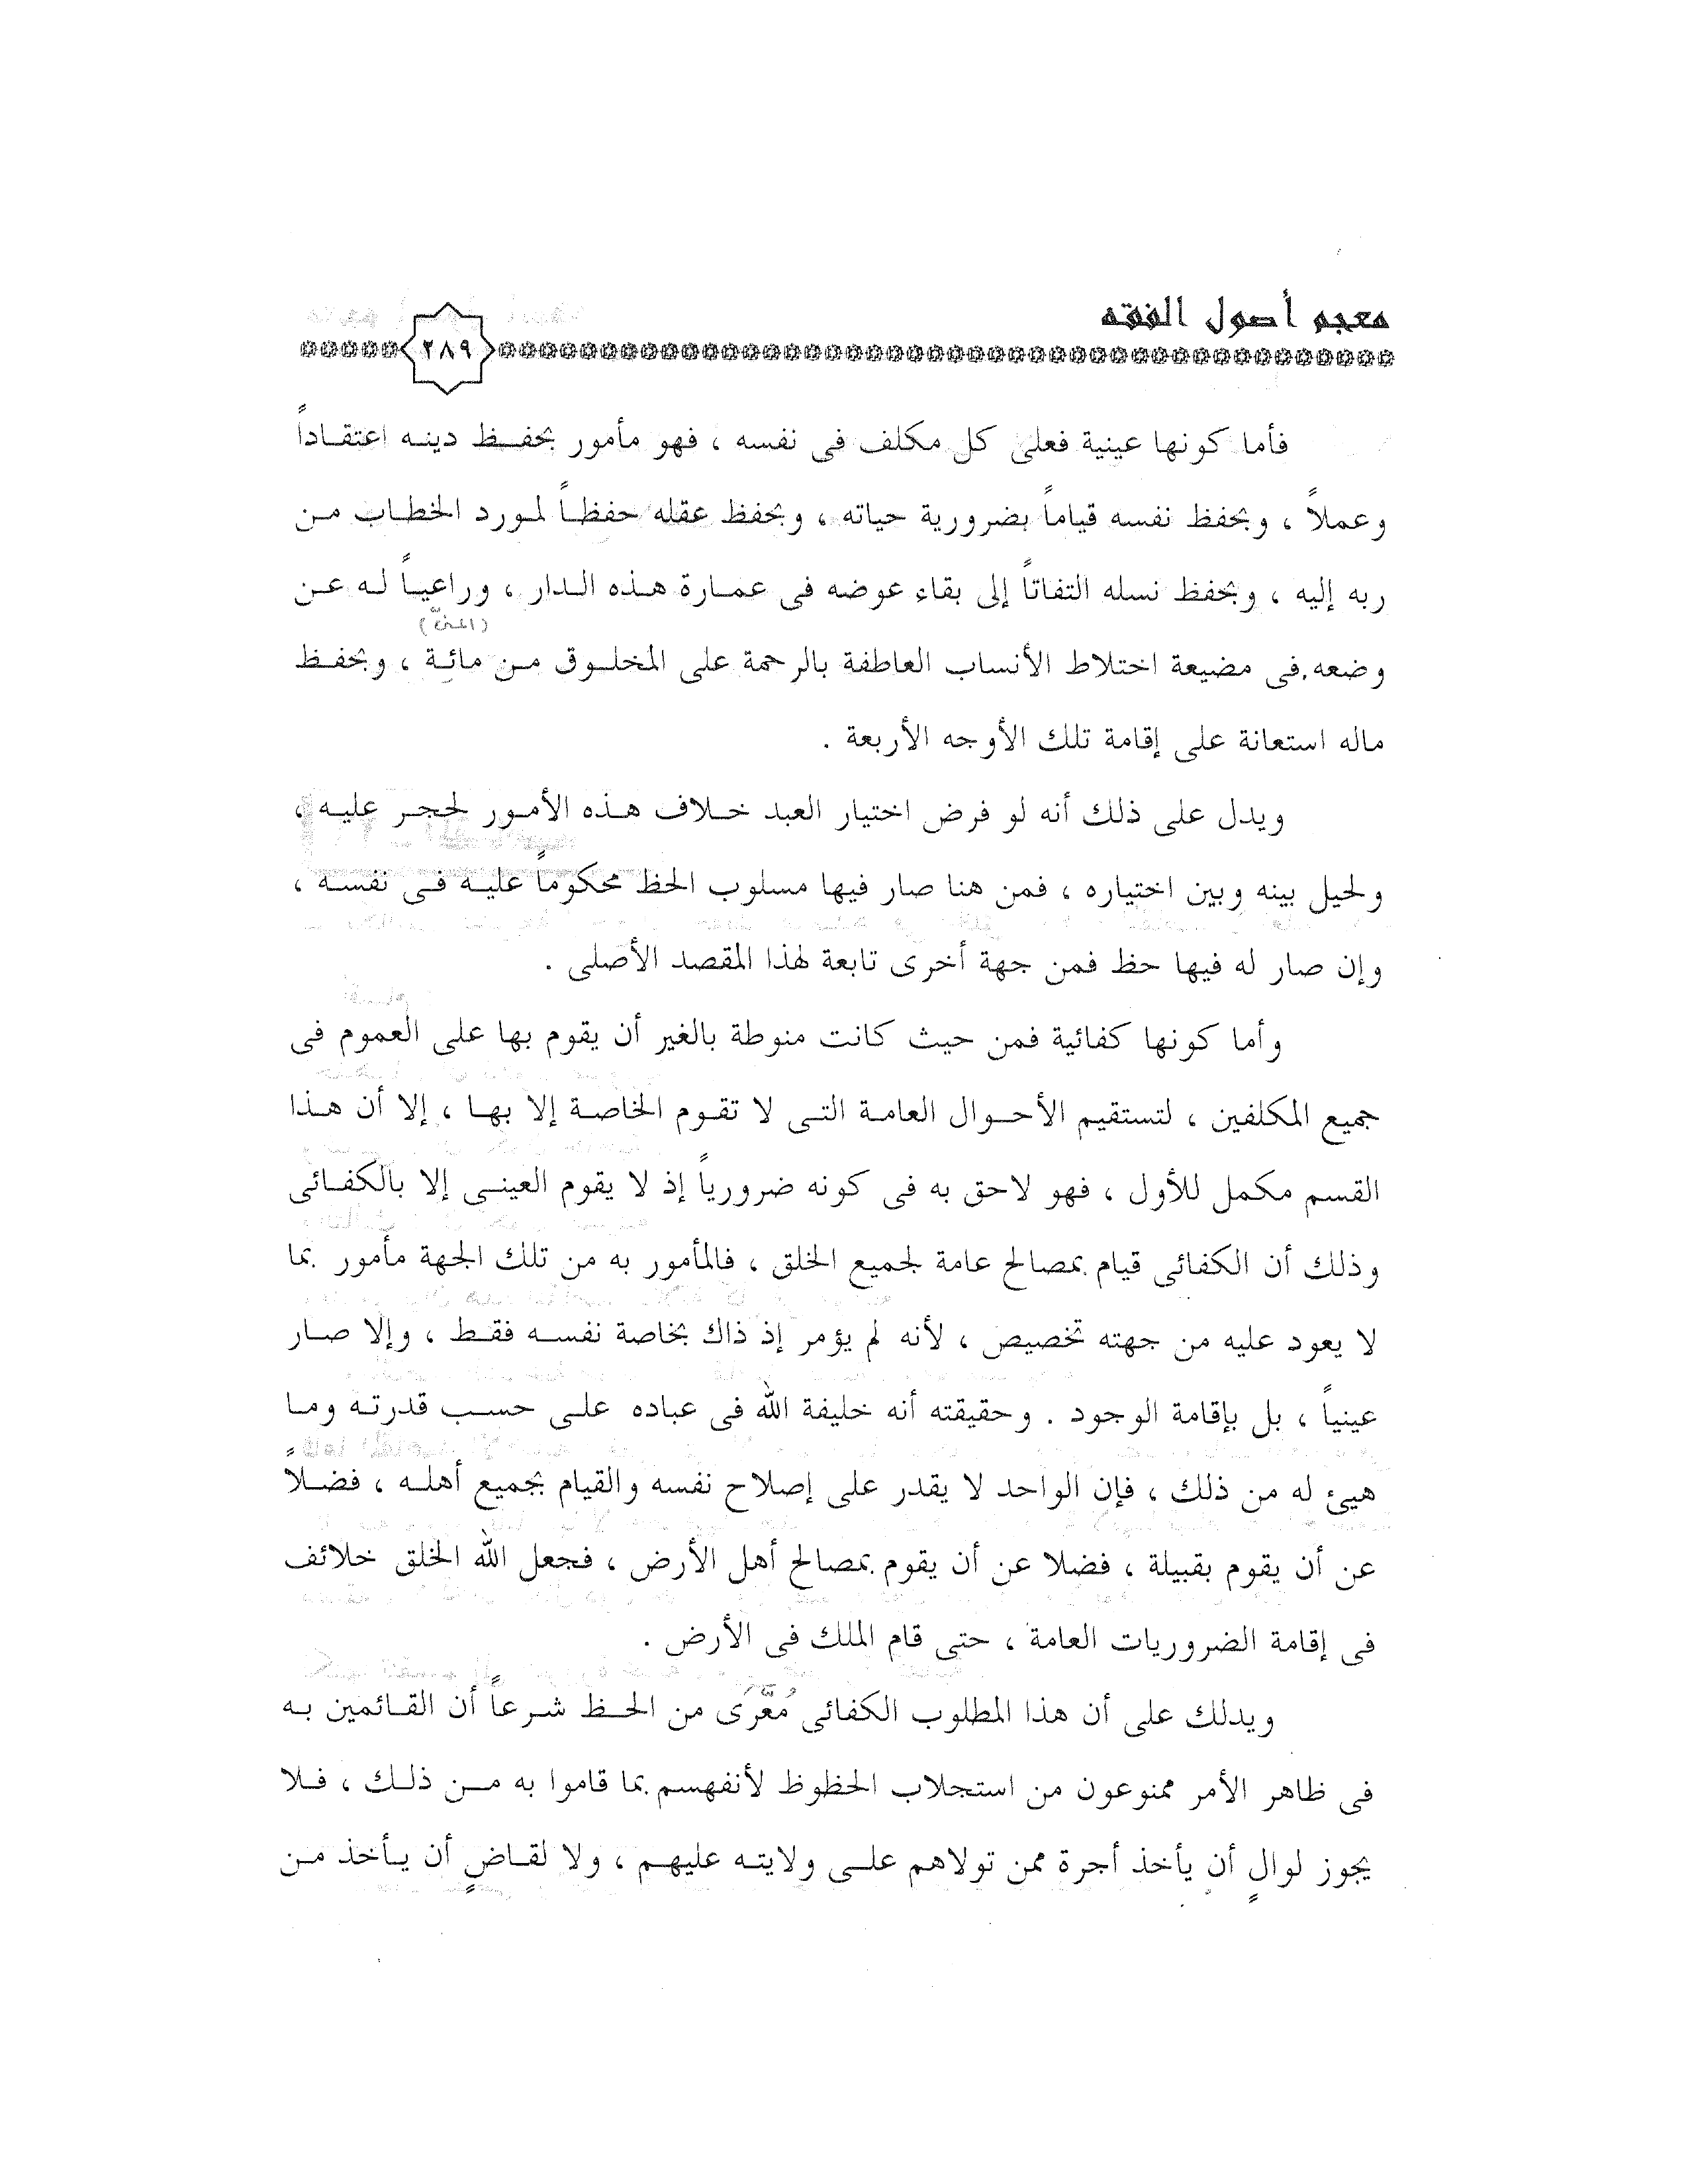 معجم أصول الفقه
٢٨٩
فأما كونها عينية فعلى كل مكلف فى نفسه ، فهو مأمور بحفظ دينه اعتقاداً
وعملاً ، وبحفظ نفسه قياماً بضرورية حياته ، وبحفظ عقله حفظاً لمورد الخطاب من
ربه إليه ، وبحفظ نسله التفاتاً إلى بقاء عوضه فى عمارة هذه الدار ، وراعياً له عن
وضعه فى مضيعة اختلاط الأنساب العاطفة بالرحمة على المخلوق من مائة ، وبحفظ
ماله استعانة على إقامة تلك الأوجه الأربعة .
ويدل على ذلك أنه لو فرض اختيار العبد خلاف هذه الأمور لحجر عليه ،
ولحيل بينه وبين اختياره ، فمن هنا صار فيها مسلوب الحظ محكوماً عليه فى نفسه ،
وإن صار له فيها حظ فمن جهة أخرى تابعة لهذا المقصد الأصلى .
وأما كونها كفائية فمن حيث كانت منوطة بالغير أن يقوم بها على العموم فى
جميع المكلفين ، لتستقيم الأحوال العامة التى لا تقوم الخاصة إلا بها ، إلا أن هذا
القسم مكمل للأول ، فهو لاحق به فى كونه ضرورياً إذ لا يقوم العينى إلا بالكفائى
وذلك أن الكفائى قيام بمصالح عامة لجميع الخلق ، فالمأمور به من تلك الجهة مأمور بما
لا يعود عليه من جهته تخصيص ، لأنه لم يؤمر إذ ذاك بخاصة نفسه فقط ، وإلا صار
عينياً ، بل بإقامة الوجود . وحقيقته أنه خليفة الله فى عباده على حسب قدرته وما
هيئ له من ذلك ، فإن الواحد لا يقدر على إصلاح نفسه والقيام بجميع أهله ، فضلاً
عن أن يقوم بقبيلة ، فضلا عن أن يقوم بمصالح أهل الأرض ، فجعل الله الخلق خلائف
فى إقامة الضروريات العامة ، حتى قام الملك فى الأرض .
ويدلك على أن هذا المطلوب الكفائى مُعَّرَى من الحظ شرعاً أن القائمين به
فى ظاهر الأمر ممنوعون من استجلاب الحظوظ لأنفهسم بما قاموا به من ذلك ، فلا
يجوز لوالٍ أن يأخذ أجرة ممن تولاهم على ولايته عليهم ، ولا لقاضٍ أن يأخذ من